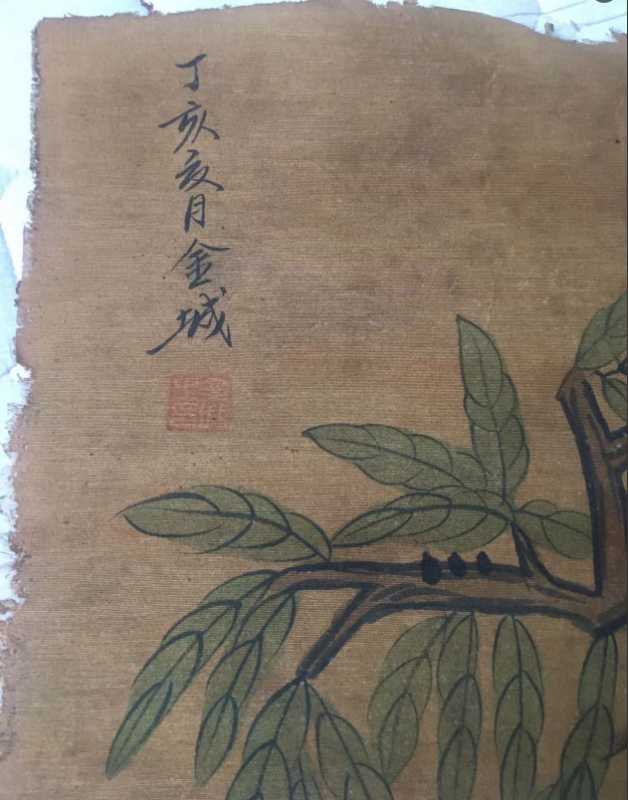 丁亥亥月金城